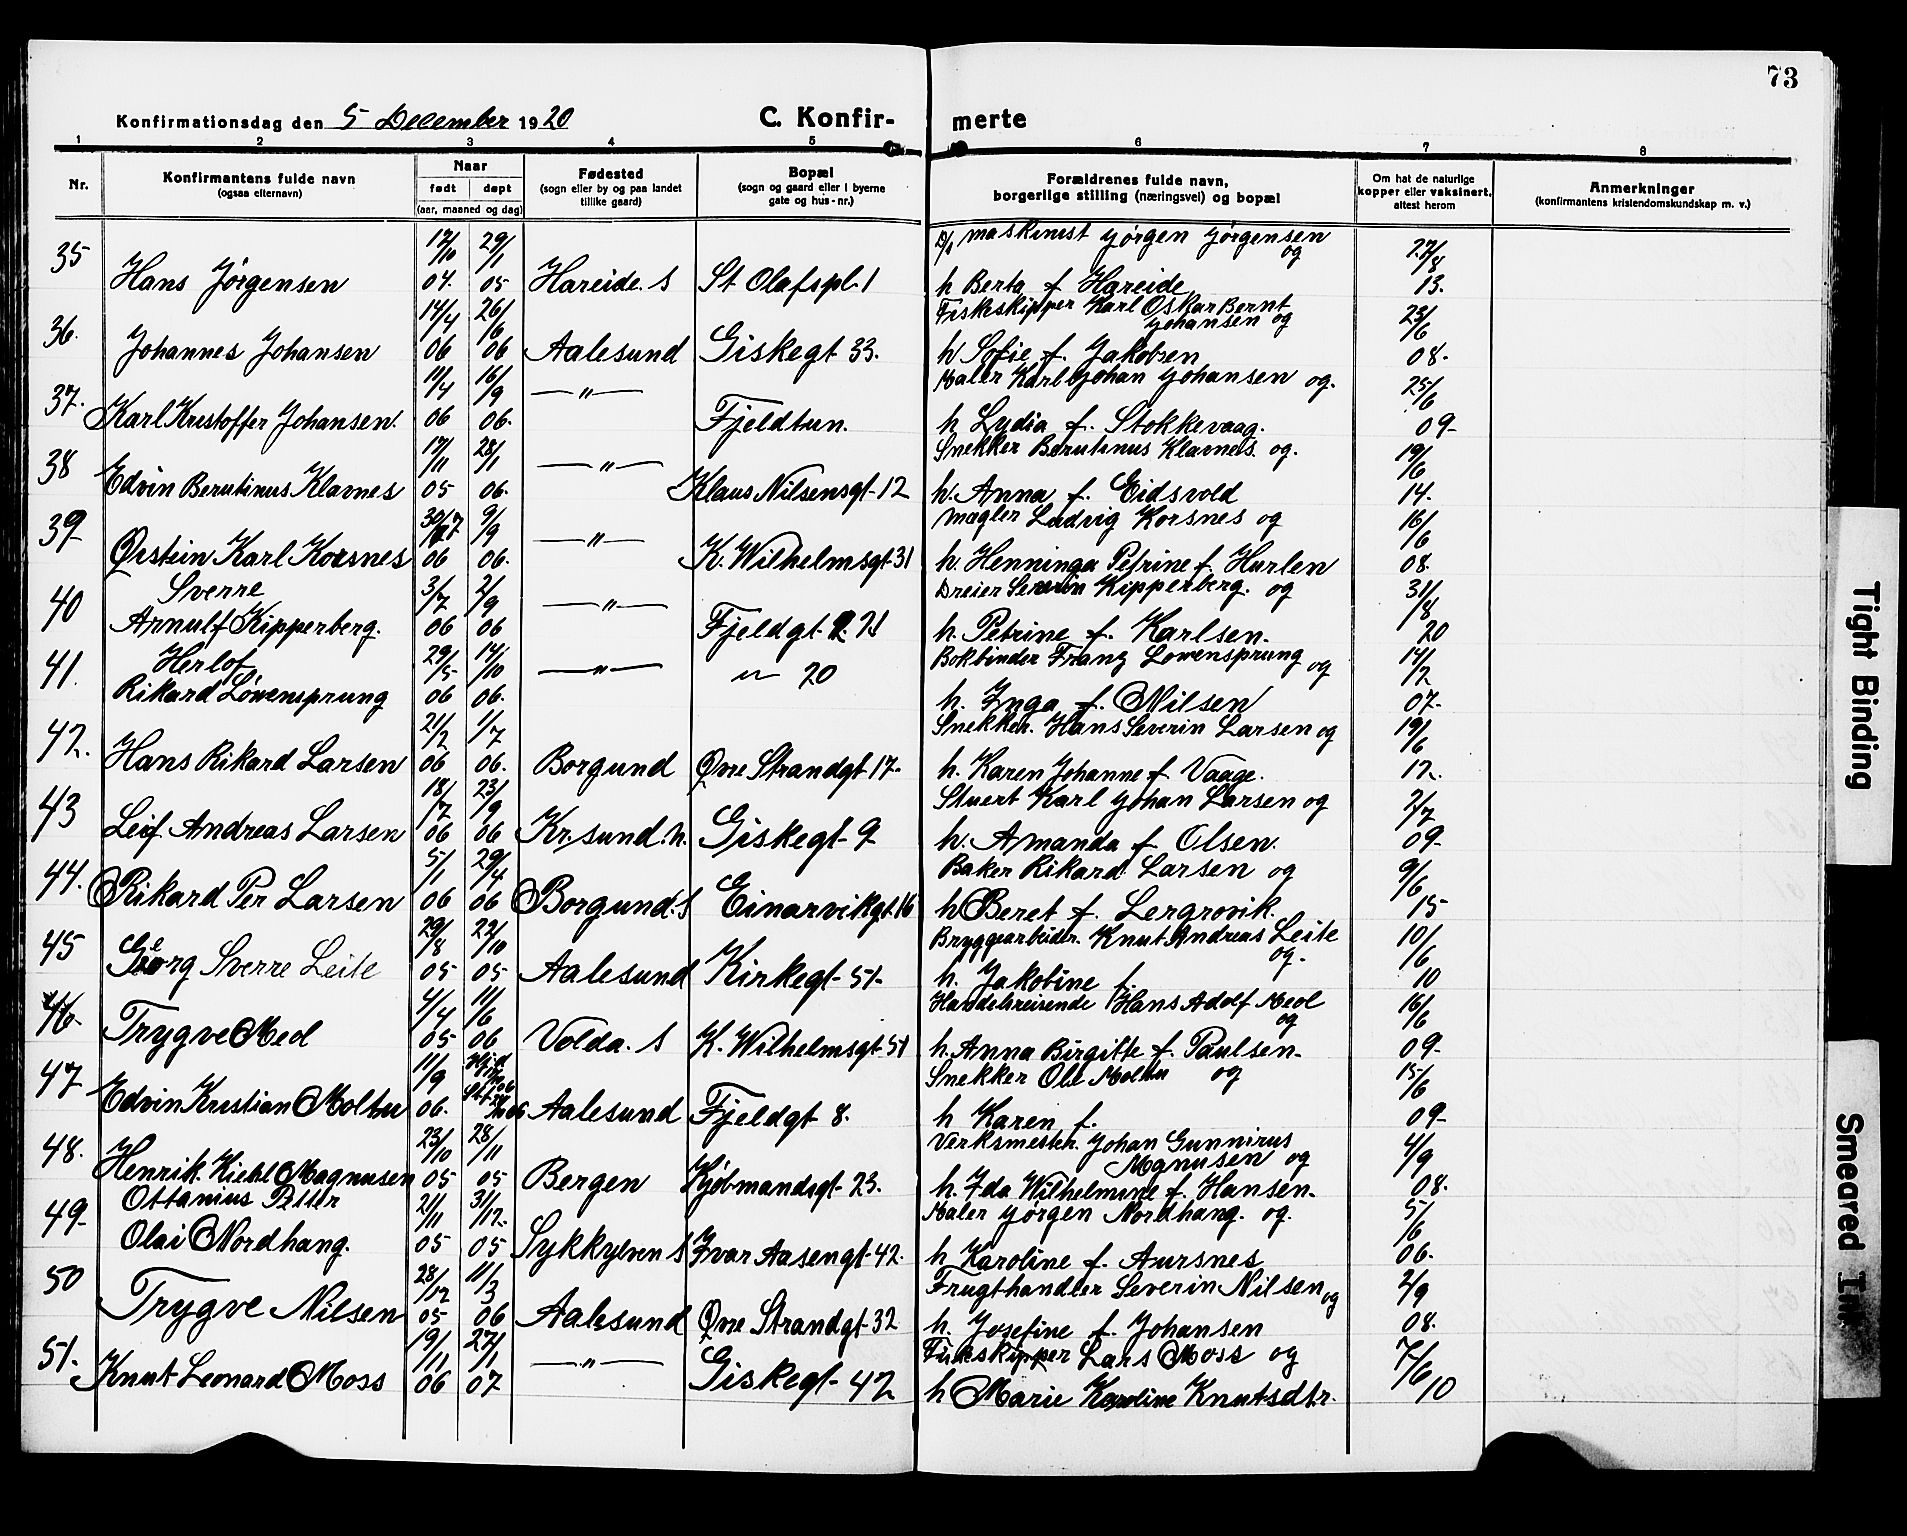 73
Konfirmationsdag den 5 December 1920 C. Konfir- merte
1 2 3 4 5 6 7 8
Nr. Konfirmantens fulde navn (ogsaa elternavn) Naar født døpt (aar, maaned og dag) Fødested (sogn eller by og paa landet tillike gaard) Bopæl (sogn og gaard eller i byerne gate og hus-nr.) Forældrenes fulde navn, borgerlige stilling (næringsvei) og bopæl Om hat de naturlige kopper eller vaksinert, attest herom Anmerkninger (konfirmantens kristendomskundskap m. v.)
35 17/10 29/1 D/s maskinist Jørgen Jørgensen og 27/8
Hans Jørgensen 04. 05 Hareide. S St Olafspl. 1 h Berta f. Hareide 13.
36. 14/4 26/6 Fiskeskipper Karl Oskar Bernt Johansen og 23/6
Johannes Johansen 06 06 Aalesund Giskegt 33. h Sofie f. Jakobsen 08.
37. 11/4 16/9 —"— Maler Karl Johan Johansen og. 25/6
Karl Kristoffer Johansen. 06 06. Fjeldtun. h Lydia f. Stokkevaag. 09-
38 17/11 28/1 —"— Snekker Berutinus Klavnes. og. 19/6
Edvin Berutinus Klavnes 05 06. Klaus Nilsensgt. 12 h. Anna f. Eidsvold 14.
39- 9/9 —"— Mægler Ludvig Korsnes og 16/6
Ørstein Karl Korsnes 06 06. K. Wilhelmsgt 31 h. Henninga Petrine f. Hurlen 08.
40 Sverre 3/7 2/9 —"— Dreier Severin Kipperberg. og 31/8
Arnulf Kipperberg. 06 06 Fjeldgt. 21 h. Petrine f. Karlsen. 20
41. Herlof 29/5 14/10 —"— " 20 Bokbinder Franz Lowensprung og 14/2
Rikard Löwensprung 06 06. h. Inga f. Nilsen 07.
42. 21/2 1/7 Snekker. Hans Severin Larsen og 19/6
Hans Rikard Larsen 06 06. Borgund Øvre Strandgt 17. h. Karen Johanne f. Vaage. 12.
43 18/7 23/9 Stuert Karl Johan Larsen og 2/7
Leif Andreas Larsen 06 06 Kr.sund. n. Giskegt 9 h. Amanda f. Olsen. 09-
44. 5/1 29/4 Baker Rikard Larsen og 9/6
Rikard Per Larsen 06 06 Borgund. S Einarvikgt. 16 h Beret f. Lergrovik. 15
45 29/8 22/10 Bryggearbeider. Knut Andreas Leite og. 10/6
Georg Sverre Leite 05 05 Aalesund Kirkegt 51. h. Jakobine f. 10
46. 4/4 11/6 Handelsreisende Hans Adolf Meol og 16/6
Trygve Meol 05 06 Volda. S K. Wilhelmsgt 51 h. Anna Birgitte f. Paulsen. 09-
47 11/9 Snekker Ole Moltu og 15/6
Edvin Kristian Moltu 06. Aalesund Fjeldgt 8. h Karen f. 09-
48. 23/10 28/11 Verksmester. Johan Gunnirus Mgnusen og 4/9
Henrik. Kiehl Magnusen 05 05 Bergen Kjøbmandsgt. 23. h. Ida Wilhelmine f. Hansen. 08.
49- Ottanius Petter 21/11 31/12. Maler Jørgen Nordhang. og. 5/6
Olai Nordhang. 05 05 Sykkylven S Ivar Aasengt 42. h Karoline f. Aursnes 06.
50 28/12 11/3 Frugthandler Severin Nilsen og 2/9
Trygve Nilsen 05 06 Aalesund Øvre Strandgt 32 h. Josefine f. Johansen 08.
51. 19/11 27/1 —"— Fiskeskipper Lars Moss og 7/6
Knut Leonard Moss 06 07 Giskegt 42 h Marie Karoline Knutsdtr. 10
Tight Binding
Smeared Ink